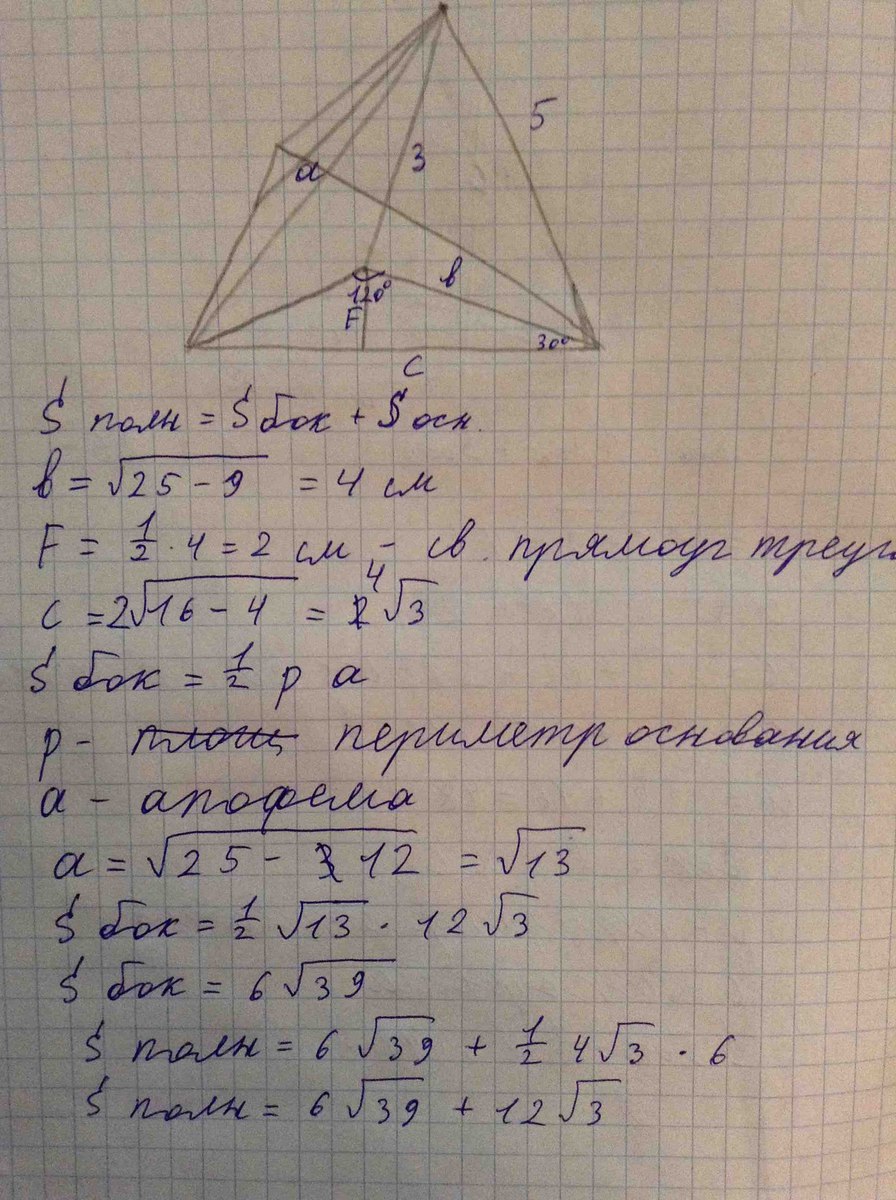 5
a
3
в
120°
F
30°
c
S полн = S бок + S осн.
в = √25 - 9 = 4 см
F = 1/2 · 4 = 2 см - св. прямоуг треуг
c = 2√16 - 4 = 4√3
S бок = 1/2 p a
p - площ периметр основания
a - апофема
a = √25 - 12 = √13
S бок = 1/2 √13 · 12√3
S бок = 6√39
S полн = 6√39 + 1/2 4√3 · 6
S полн = 6√39 + 12√3